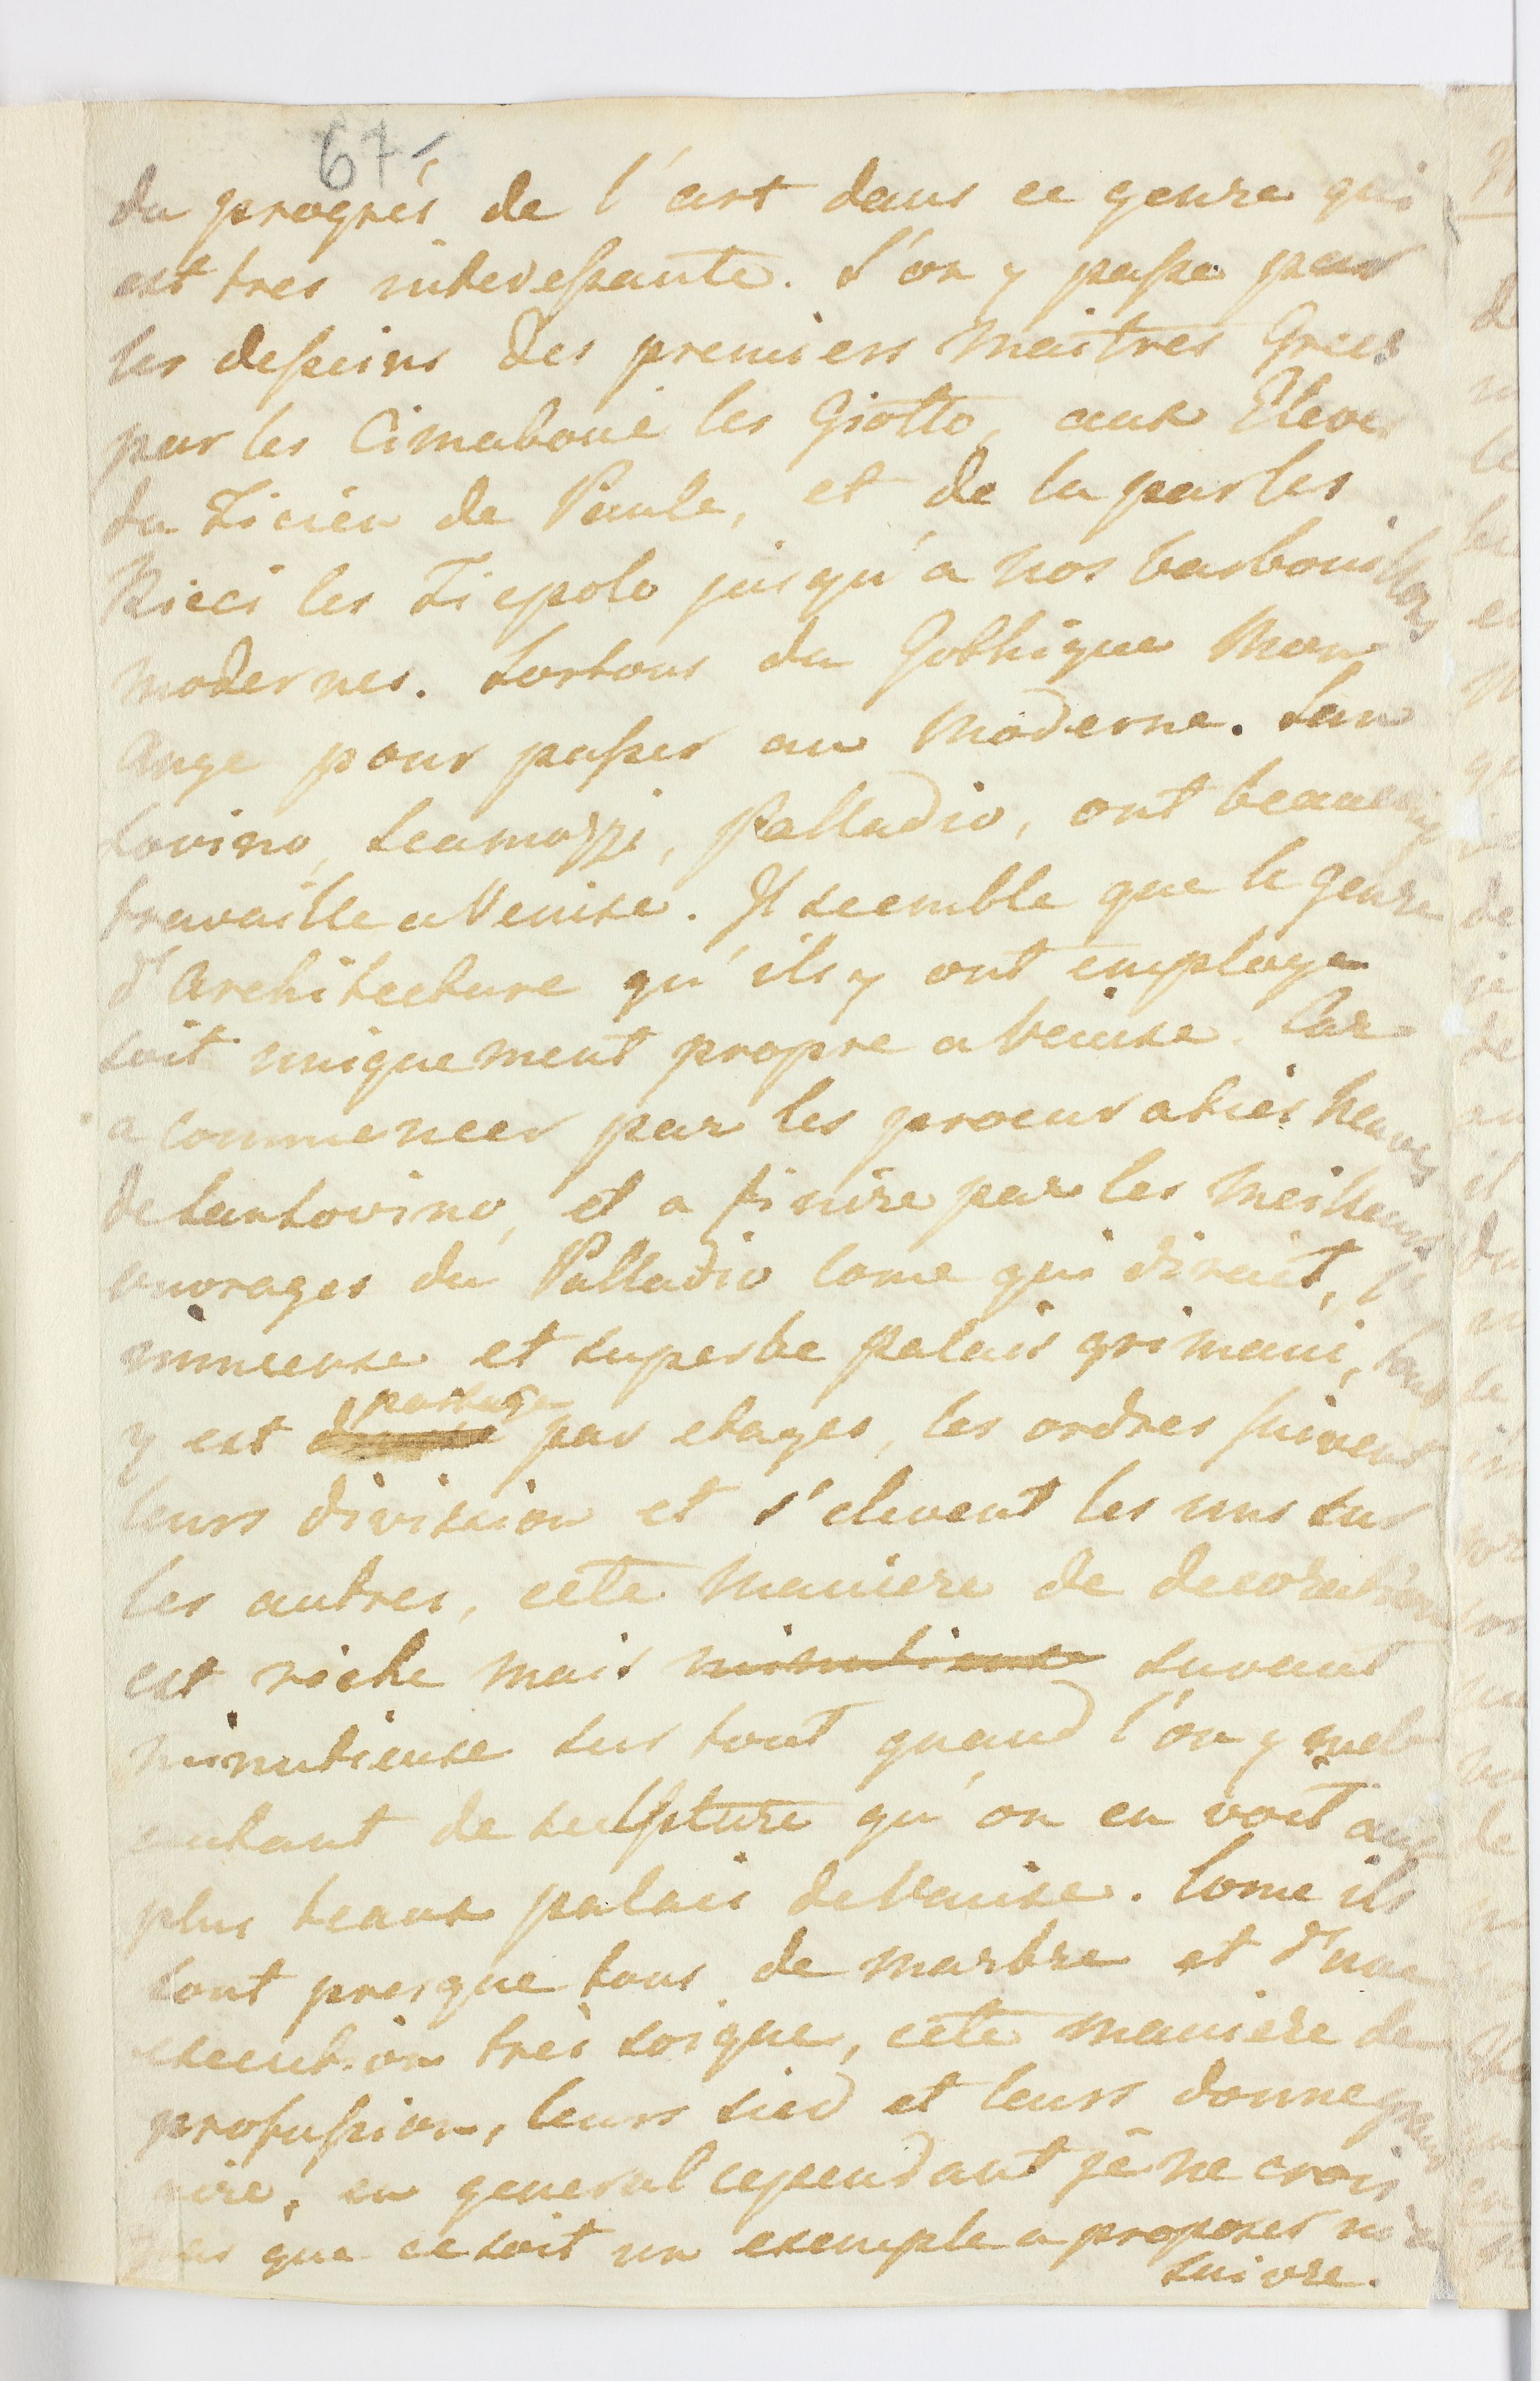 67-
du progrés de l'art dans ce genre qui
est tres interessante. l'on y passe par
les desseins des premiers maitres Grecs
par les Cimaboué les Giotto, aux Eleves
du Ticien de Paule, et de la par les
Ricci les Tiepolo jusqu'a nos barbouillons
modernes. Sortons du Gothique
ange pour passer au moderne. San
sovino, Scamozzi, Palladio, ont beaucoup
travaille a Venise. Il seemble que le genre
d'Architecture qu'ils y ont employe
soit uniquement propre a Venise. Car
a commencer par les procuraties neuves
de Sansovino, et a finire par les meilleurs
ouvrages du Palladio come qui dirait, l'
immense et superbe palais grimani, tout
partage
y est par etages, les ordres suivent
leurs division et s'elevent les uns sur
les autres, cete maniere de decoration
est riche mais minutieuse suvant
minutieuse sur tout quand l'on y mele
autant de sculpture qu'on en voit aux
plus beaux palais de Venise. Come ils
sont presque tous de marbre et d'une
execution très soigne, cete maniere de
profussion, leurs sied et leurs donne grand
aire, en general cependant je ne crois
pas que ce soit un exemple a proposer ni a
suivre.